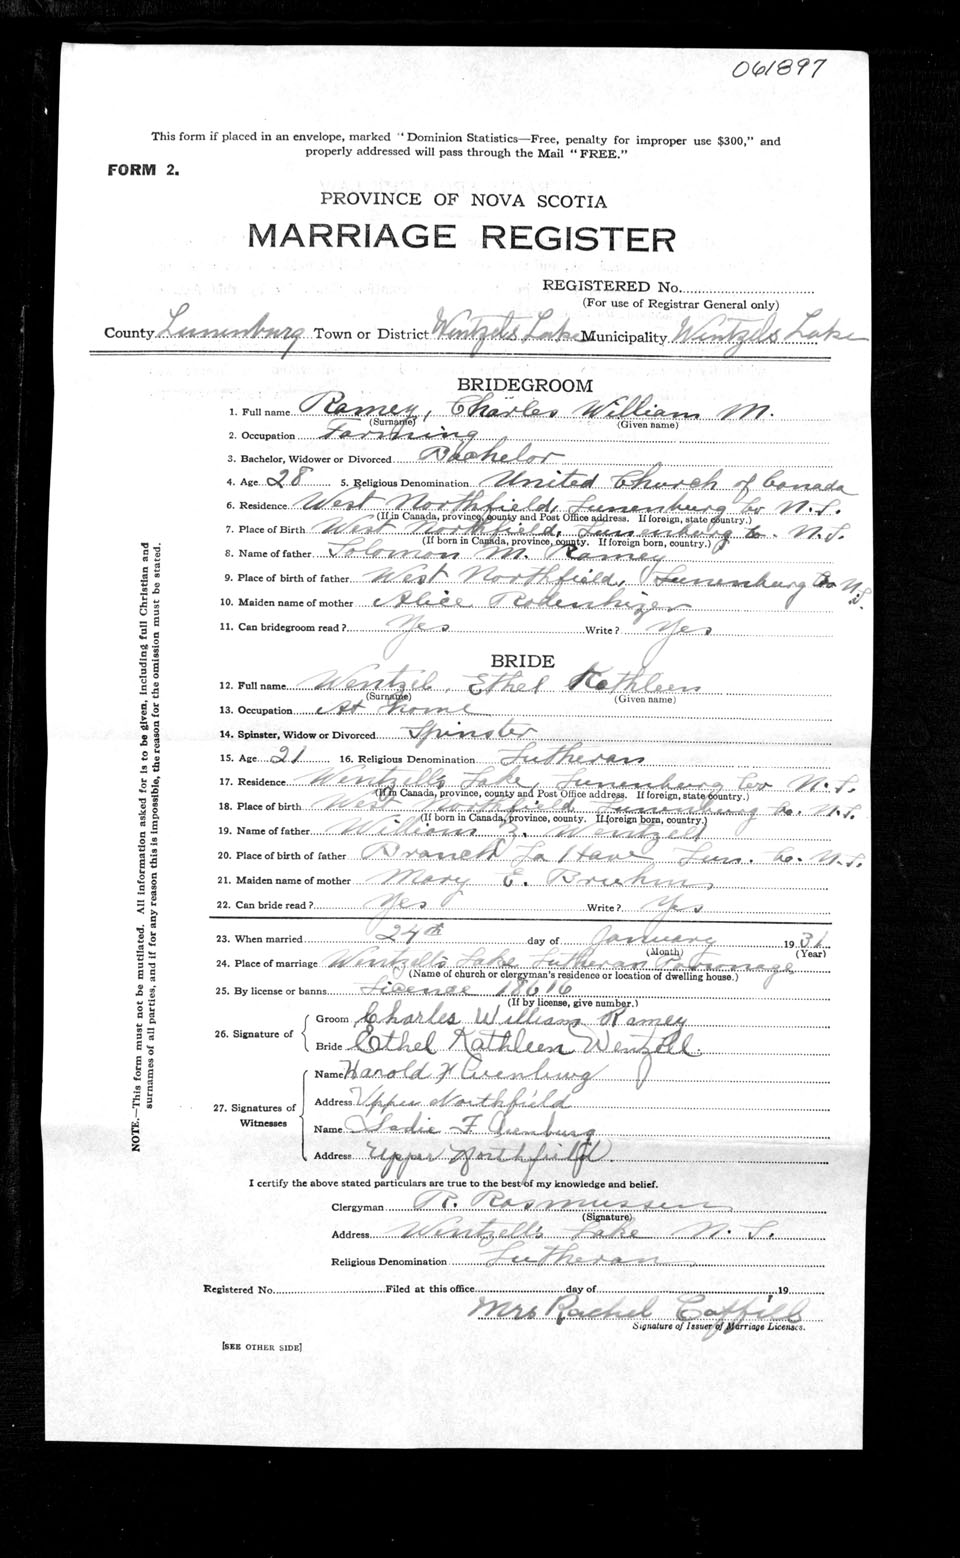 061897
This form if placed in an envelope, marked "Dominion Statistics—Free, penalty for improper use $300," and
properly addressed will pass through the Mail "FREE."
FORM 2.
PROVINCE OF NOVA SCOTIA
MARRIAGE REGISTER
REGISTERED No.
(For use of Registrar General only)
County Lunenburg Town or District Wentzels Lake Municipality Wentzels Lake
BRIDEGROOM
1. Full name Ramey, Charles William M.
(Surname) (Given name)
2. Occupation Farming
3. Bachelor, Widower or Divorced Bachelor
4. Age 28 5. Religious Denomination United Church of Canada
6. Residence West Northfield, Lunenburg Co N.S.
(If in Canada, province, county and Post Office address. If foreign, state country.)
7. Place of Birth West Northfield, Lunenburg Co. N.S.
(If born in Canada, province, county. If foreign born, country.)
8. Name of father Solomon M. Ramey
9. Place of birth of father West Northfield, Lunenburg Co N.S.
10. Maiden name of mother Alice Rodenhizer
11. Can bridegroom read? Yes Write? Yes
BRIDE
12. Full name Wentzel, Ethel Kathleen
(Surname) (Given name)
13. Occupation At home
14. Spinster, Widow or Divorced Spinster
15. Age 21 16. Religious Denomination Lutheran
17. Residence Wentzell's Lake, Lunenburg Co N.S.
(If in Canada, province, county and Post Office address. If foreign, state country.)
18. Place of birth West Northfield Lunenburg Co. N.S.
(If born in Canada, province, county. If foreign born, country.)
19. Name of father William Wentzell
20. Place of birth of father Branch La Have Lun. Co. N.S.
21. Maiden name of mother Mary E. Bruhm
22. Can bride read? Yes Write? Yes
23. When married 24th day of January 1931
(Month) (Year)
24. Place of marriage Wentzell's Lake Lutheran Parsonage
(Name of church or clergyman's residence or location of dwelling house.)
25. By license or banns License 18616
(If by license, give number.)
26. Signature of Groom Charles William Ramey
Bride Ethel Kathleen Wentzel.
27. Signatures of Witnesses
Name Harold
Address Upper Northfield
Name Sadie F.
Address Upper Northfield.
I certify the above stated particulars are true to the best of my knowledge and belief.
Clergyman R. Rasmussen
(Signature)
Address Wentzell's Lake N.S.
Religious Denomination Lutheran
Registered No. Filed at this office day of , 19
Mrs Rachel
Signature of Issuer of Marriage Licenses.
[SEE OTHER SIDE]
NOTE.—This form must not be mutilated. All information asked for is to be given, including full Christian and
surnames of all parties, and if for any reason this is impossible, the reason for the omission must be stated.